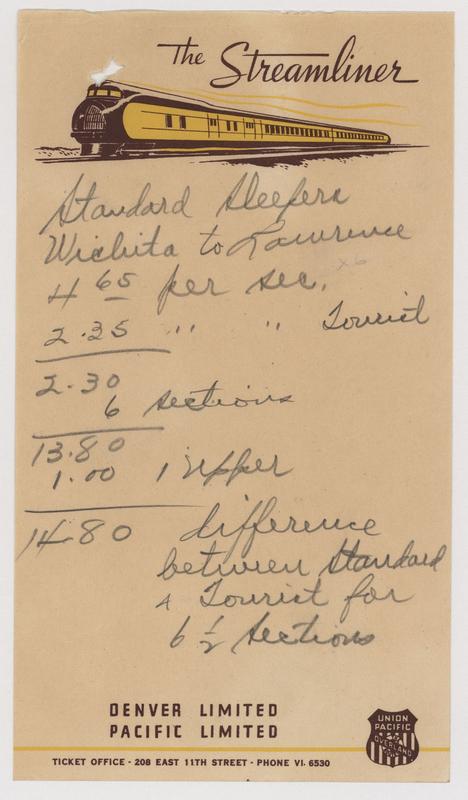 The Streamliner
Standard Sleepers
Wichita to Lawrence
x6
4 65 per sec.
2.35 " " Tourist
2.30
6 sections
13.80
1.00 1 upper
14.80 difference
between Standard
& Tourist for
6 1/2 sections
DENVER LIMITED
PACIFIC LIMITED
UNION
PACIFIC
OVERLAND
TICKET OFFICE - 208 EAST 11TH STREET - PHONE VI. 6530